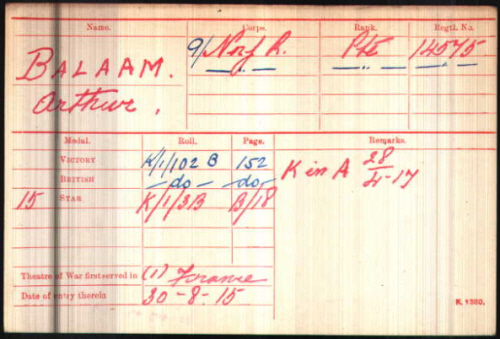 Name. Corps. Rank. Regtl. No.
BALAAM. 9/Norf R. Pte 14575
Arthur. " " " "
Medal. Roll. Page. Remarks.
VICTORY K/1/102 B 152 K in A 28/4-17
BRITISH -do- -do-
15 STAR K/1/3B B/18
Theatre of War first served in (1) France
Date of entry therein 30-8-15
K. 1380.